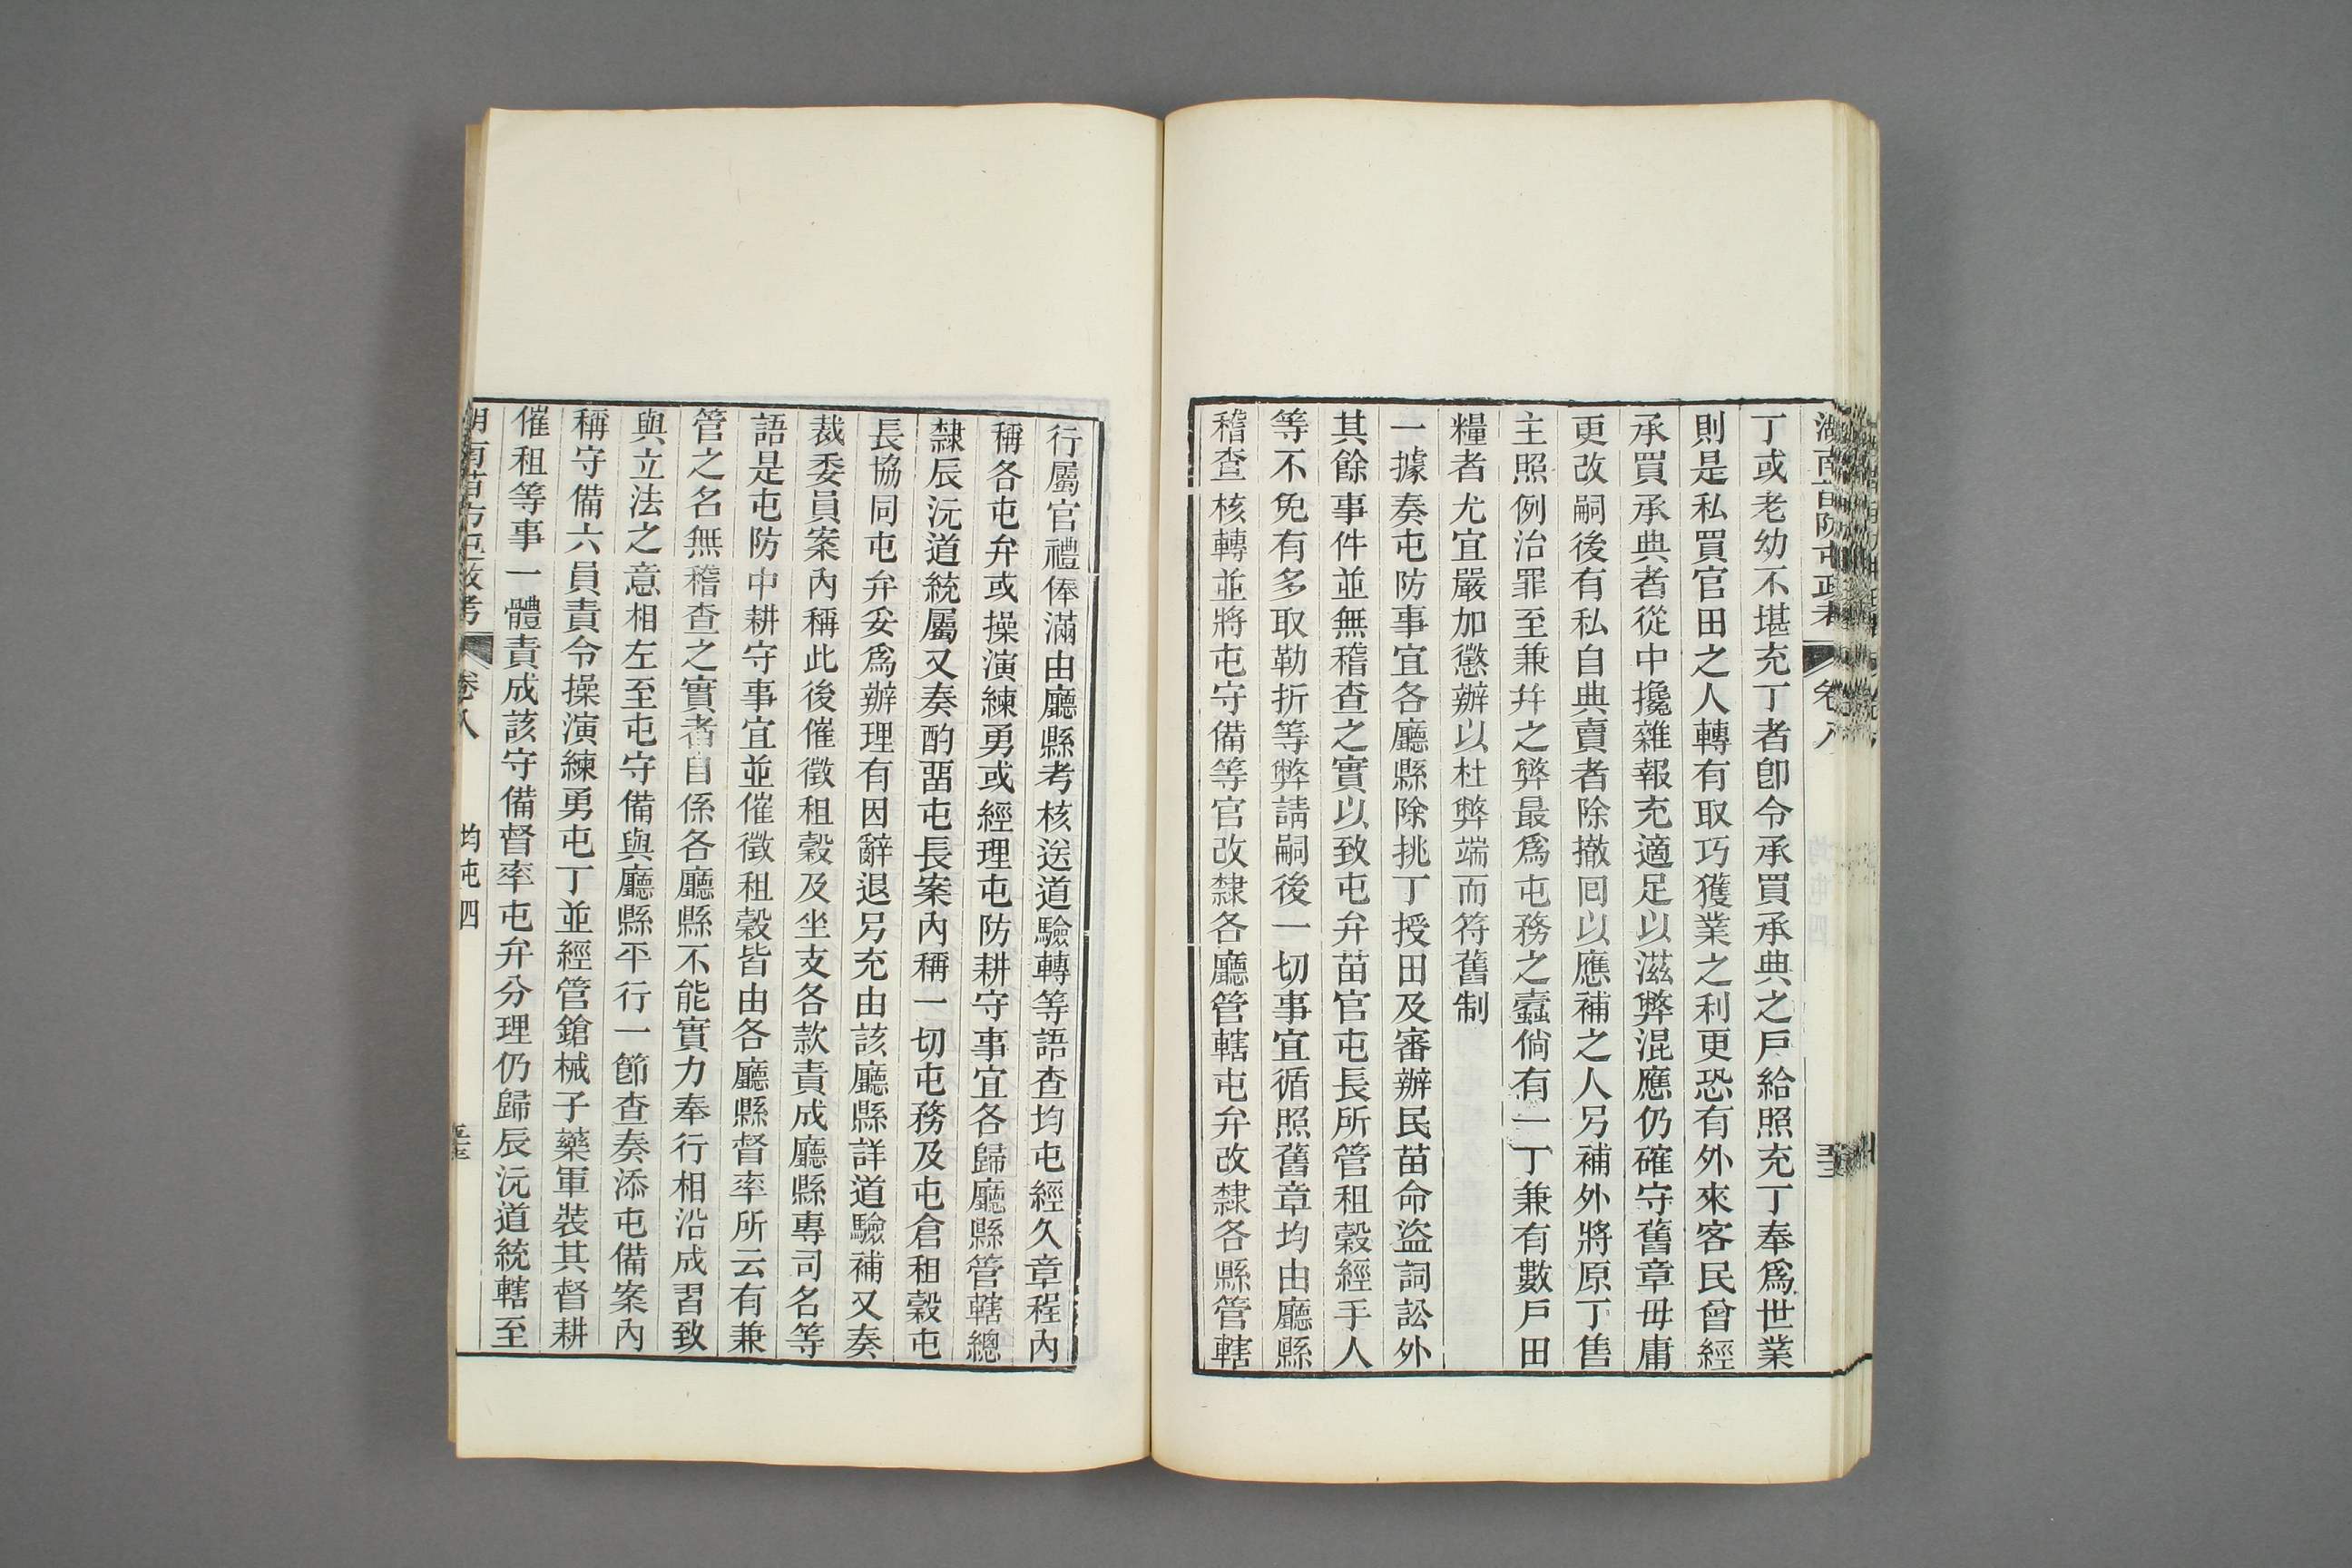 湖南苗防屯政考 卷八
丁或老幼不堪充丁者卽令承買承典之戶給照充丁奉爲世業
則是私買官田之人轉有取巧獲業之利更恐有外來客民曾經
承買承典者從中攙雜報充適足以滋弊混應仍確守舊章毋庸
更改嗣後有私自典賣者除撤回以應補之人另補外將原丁售
主照例治罪至兼幷之弊最爲屯務之蠧倘有一丁兼有數戶田
糧者尤宜嚴加懲辦以杜弊端而符舊制
一據奏屯防事宜各廳縣除挑丁授田及審辦民苗命盜詞訟外
其餘事件並無稽查之實以致屯弁苗官屯長所管租穀經手人
等不免有多取勒折等弊請嗣後一切事宜循照舊章均由廳縣
稽查核轉並將屯守備等官改隸各廳管轄屯弁改隸各縣管轄
行屬官禮俸滿由廳縣考核送道驗轉等語查均屯經久章程內
稱各屯弁或操演練勇或經理屯防耕守事宜各歸廳縣管轄總
隸辰沅道統屬又奏酌畱屯長案內稱一切屯務及屯倉租穀屯
長協同屯弁妥爲辦理有因辭退另充由該廳縣詳道驗補又奏
裁委員案內稱此後催徵租穀及坐支各款責成廳縣專司名等
語是屯防中耕守事宜並催徵租穀皆由各廳縣督率所云有兼
管之名無稽查之實者自係各廳縣不能實力奉行相沿成習致
與立法之意相左至屯守備與廳縣平行一節查奏添屯備案內
稱守備六員責令操演練勇屯丁並經管鎗械子藥軍裝其督耕
催租等事一體責成該守備督率屯弁分理仍歸辰沅道統轄至
湖南苗方屯政考 卷八 均屯四